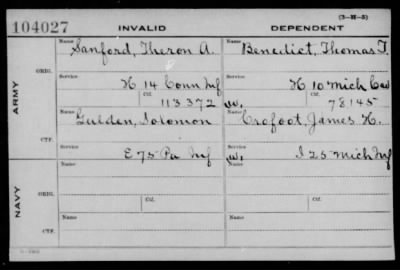 (3-H-5)
104027 INVALID DEPENDENT
Name Sanford, Theron A. Name Benedict, Thomas T.
ORIG.
Service H 14 Conn Inf Service H 10 Mich Cav
ARMY
Ctf. 113372 W. Ctf. 78145
Name Gulden, Solomon Name Crofoot, James H.
CTF.
Service E 75 Pa Inf W. Service I 25 Mich Inf
Name Name
ORIG.
NAVY
Service Ctf. Service Ctf.
Name Name
CTF.